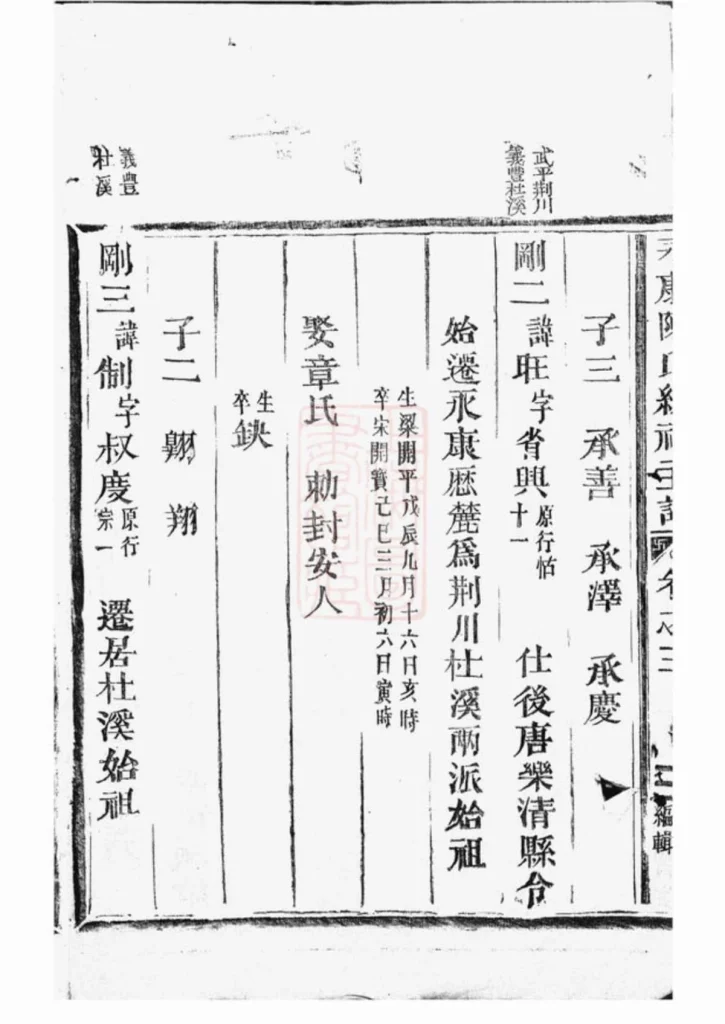 永康陳氏統祠主譜 卷之三 編輯
武平荆川
義豐杜溪
子三 承善 承澤 承慶
剛二諱旺字省興原行恬十一 仕後唐樂清縣令
始遷永康歷麓爲荆川杜溪兩派始祖
生梁開平戊辰九月十六日亥時
卒宋開寶己巳三月初六日寅時
娶章氏 勅封安人
生
卒缺
子二 翺 翔
義豐
杜溪
剛三諱制字叔慶原行宗一 遷居杜溪始祖